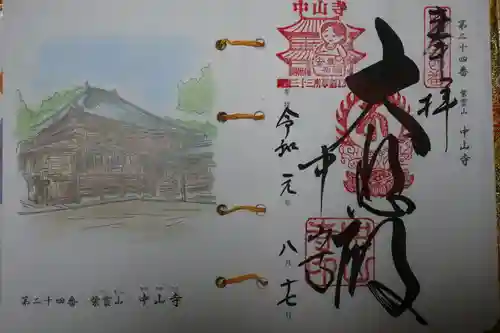 第二十四番 紫雲山 中山寺
奉拝
大悲殿
中山寺
令和 元年 八月 十七日
中山寺
第二十四番 紫雲山 中山寺